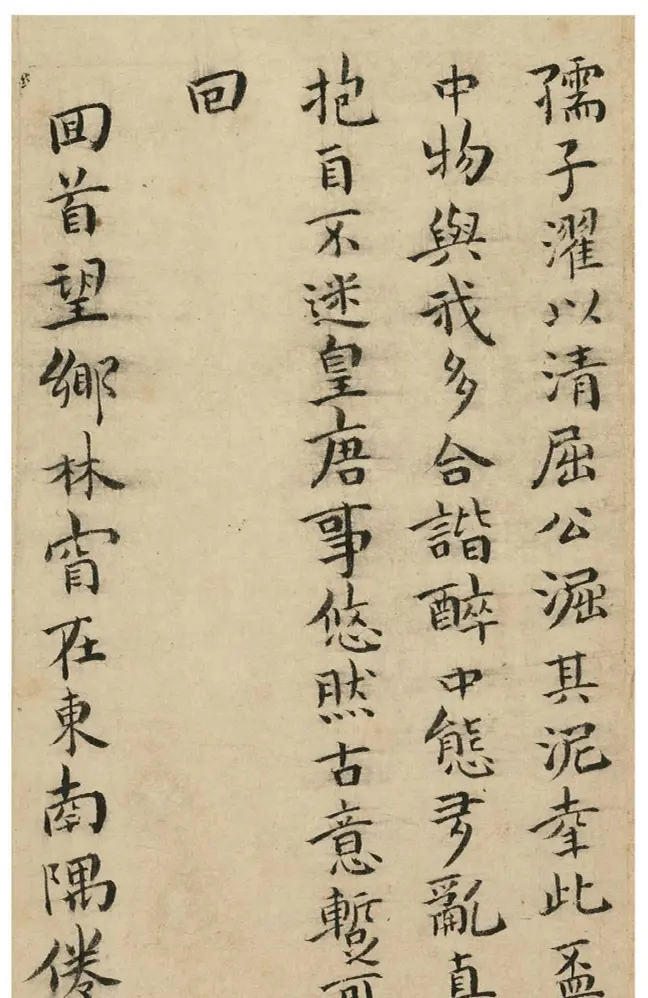 孺子濯以清屈公淈其泥幸此盃
中物與我多合諧醉中態多亂真
抱自不迷皇唐事悠然古意蹔可
回
回首望鄉林宵在東南隅倦